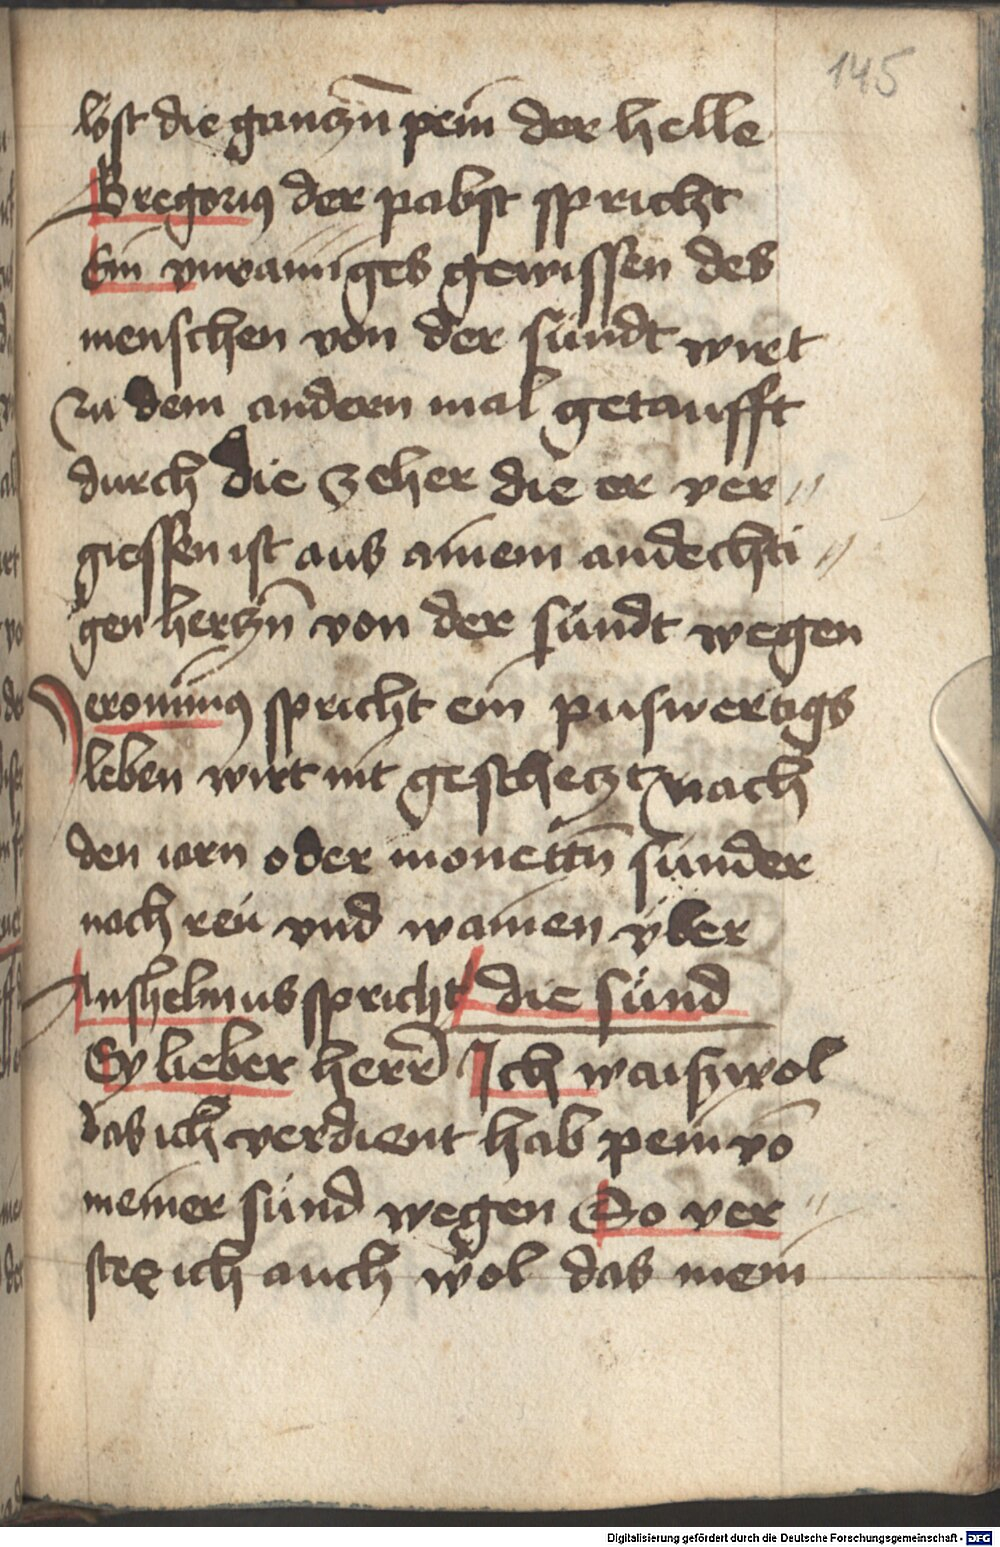 145
löst die ganczn̄ pein der helle
Gregorius der pabst spricht
Ein vnrainiges gewissen des
menschen von der sündt wirt
zu dem andern mal getaufft
durch die zeher die er ver〃
giessen ist aus ainem andechti〃
gen herczn̄ von der sündt wegen
Jeronimus spricht ein puswertigs
leben wirt nit geschetzt nach
den iarn oder monettn̄ sunder
nach reü vnd wainen vber
Anshelmus spricht die sünd
Ey lieber herr Ich waiss wol
das ich verdient hab pein vō
meiner sünd wegen So ver〃
stee ich auch wol das mein
Digitalisierung gefördert durch die Deutsche Forschungsgemeinschaft - DFG